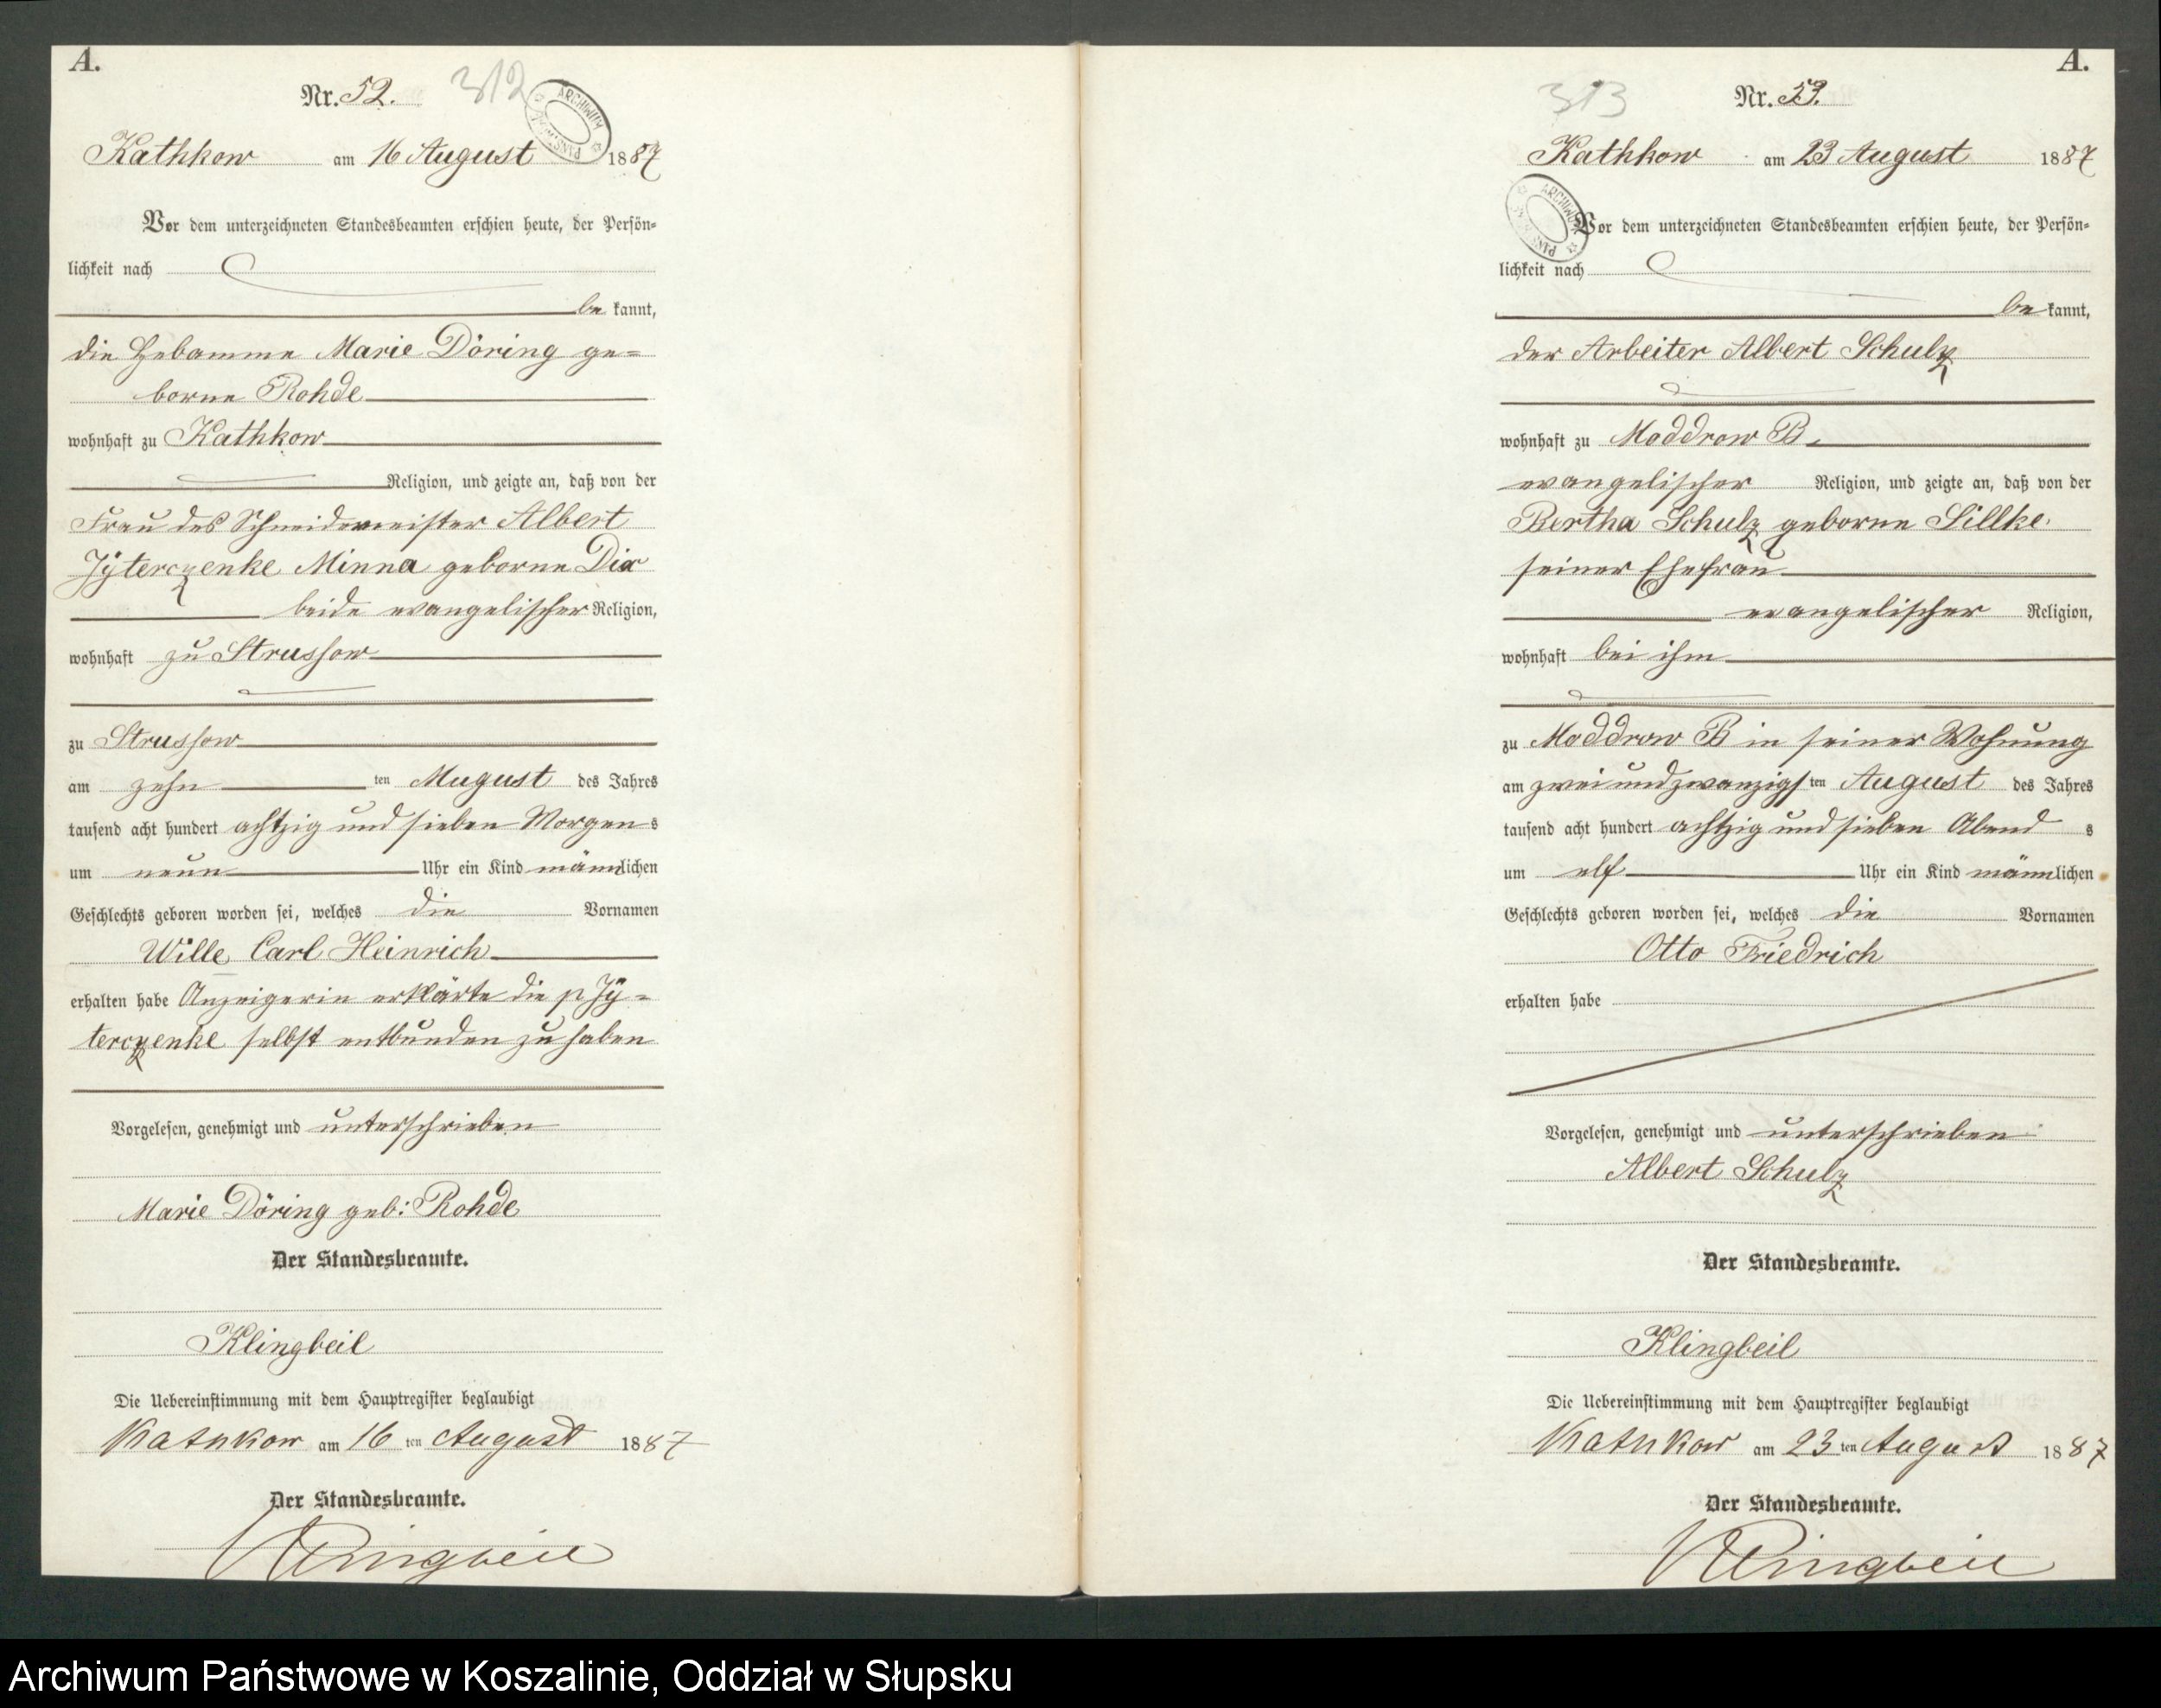 A.
Nr. 52.
312
ARCHIWUM PAŃSTW
Kathkow am 16 August 1887
Vor dem unterzeichneten Standesbeamten erschien heute, der Persön-
lichkeit nach
be kannt,
die Hebamme Marie Döring ge-
borne Rohde
wohnhaft zu Kathkow
Religion, und zeigte an, daß von der
Frau des Schneidermeister Albert
Jÿterczenke Minna geborne Dix
beide evangelischer Religion,
wohnhaft zu Strussow
zu Strussow
am zehn ten August des Jahres
tausend acht hundert achtzig und sieben Morgen s
um neun Uhr ein Kind männlichen
Geschlechts geboren worden sei, welches die Vornamen
Wille Carl Heinrich
erhalten habe Anzeigerin erklärte die p Jÿ-
terczenke selbst entbunden zu haben
Vorgelesen, genehmigt und unterschrieben
Marie Döring geb: Rohde
Der Standesbeamte.
Klingbeil
Die Uebereinstimmung mit dem Hauptregister beglaubigt
Kathkow am 16 ten August 1887
Der Standesbeamte.
Klingbeil
A.
Nr. 53.
313
Kathkow am 23 August 1887
ARCHIWUM PAŃSTW
Vor dem unterzeichneten Standesbeamten erschien heute, der Persön-
lichkeit nach
be kannt,
der Arbeiter Albert Schulz
wohnhaft zu Moddrow B.
evangelischer Religion, und zeigte an, daß von der
Bertha Schulz geborne Sillke
seiner Ehefrau
evangelischer Religion,
wohnhaft bei ihm
zu Moddrow B in seiner Wohnung
am zweiundzwanzigs ten August des Jahres
tausend acht hundert achtzig und sieben Abend s
um elf Uhr ein Kind männlichen
Geschlechts geboren worden sei, welches die Vornamen
Otto Friedrich
erhalten habe
Vorgelesen, genehmigt und unterschrieben
Albert Schulz
Der Standesbeamte.
Klingbeil
Die Uebereinstimmung mit dem Hauptregister beglaubigt
Kathkow am 23 ten August 1887
Der Standesbeamte.
Klingbeil
Archiwum Państwowe w Koszalinie, Oddział w Słupsku